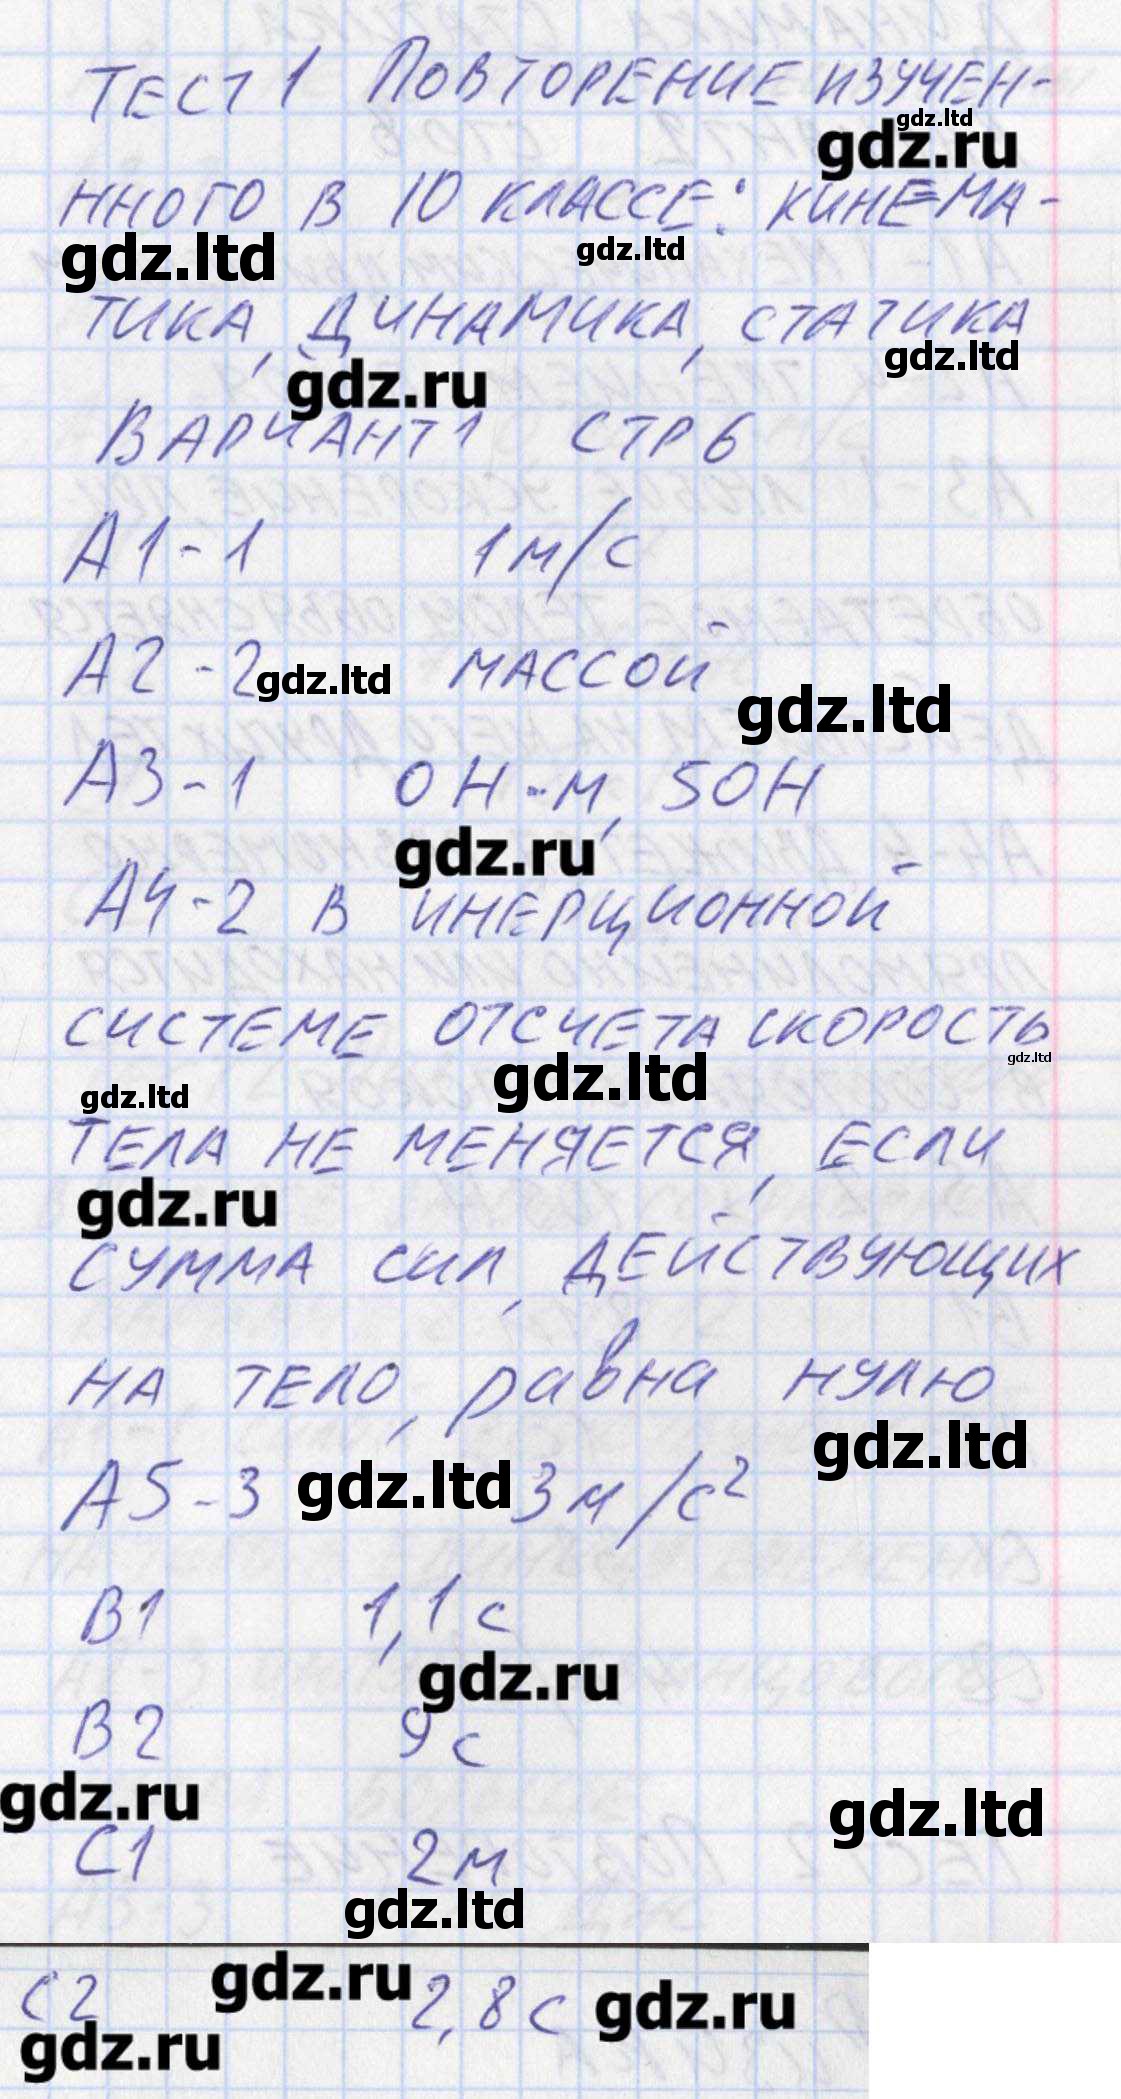 ТЕСТ 1 ПОВТОРЕНИЕ ИЗУЧЕН-
gdz.ltd
gdz.ru
ННОГО В 10 КЛАССЕ: КИНЕМА-
gdz.ltd gdz.ltd
ТИКА, ДИНАМИКА, СТАТИКА
gdz.ru gdz.ltd
ВАРИАНТ 1 СТР 6
А1-1 1 м/с
А2-2 МАССОЙ
gdz.ltd gdz.ltd
А3-1 0Н·м, 50Н
gdz.ru
А4-2 В ИНЕРЦИОННОЙ
СИСТЕМЕ ОТСЧЕТА СКОРОСТЬ
gdz.ltd gdz.ltd gdz.ltd
ТЕЛА НЕ МЕНЯЕТСЯ, ЕСЛИ
gdz.ru
СУММА СИЛ, ДЕЙСТВУЮЩИХ
НА ТЕЛО, равна НУЛЮ
gdz.ltd
А5-3 gdz.ltd 3 м/с²
В1 1,1 с
gdz.ru
В2 9 с
gdz.ru gdz.ltd
С1 2 м
gdz.ltd
С2 gdz.ru 2,8 с gdz.ru
gdz.ru